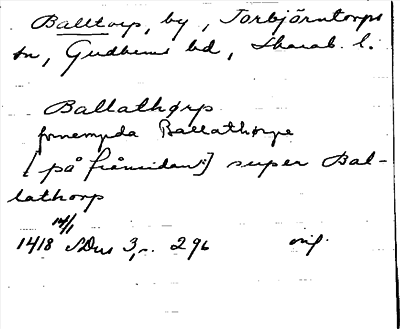 Balltorp, by, Torbjörntorps
sn, Gudhems hd, Skarab. l.
Ballathørp
fornempda Ballathorpe
[på frånsidan:] super Bal-
lathorp
14/1
1418 SDns 3, 296 orig.